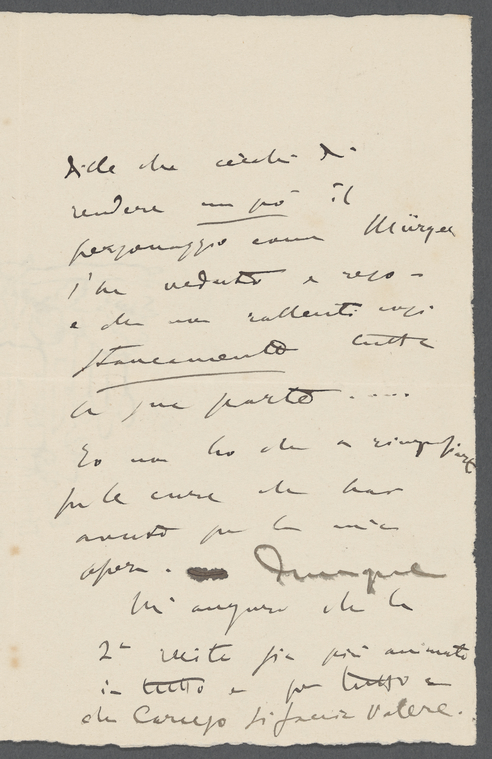 dille che cerchi di
rendere un pò il
personaggio come Mürger
l'ha veduto e reso -
e che non rallenti così
stancamente tutta
la sua parte ....
Io non ho che a ringraziare
per le cure che hai
avuto per la mia
opera. Dunque
Mi auguro che la
2ª recita sia più animata
in tutto e per tutto e
che Caruso si faccia valere.